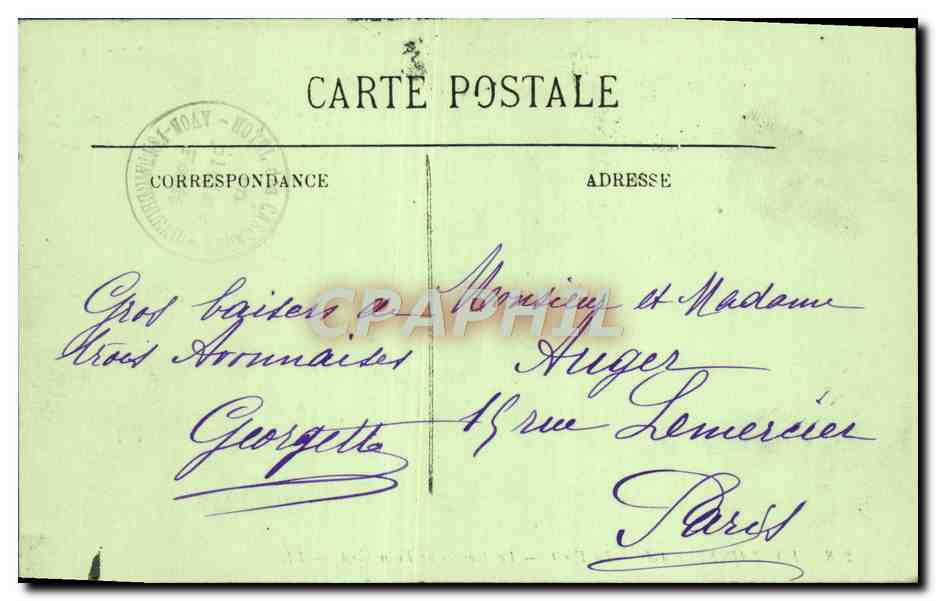 CARTE POSTALE
CORRESPONDANCE
ADRESSE
Gros baisers de
trois Avonnaises
Georgette
Monsieur et Madame
Auger
15 rue Lemercier
Paris
CPAPHIL